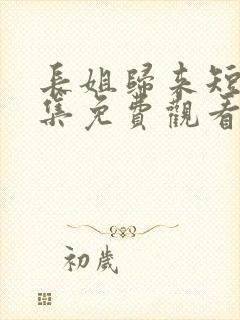 長姐歸來短
集免費觀看
初歲